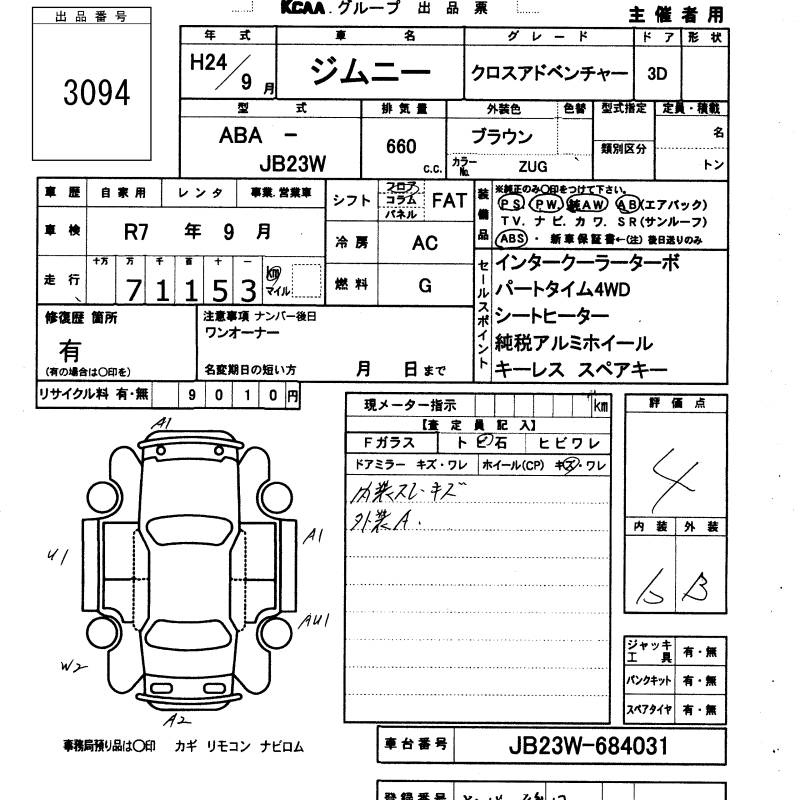 KCAA.グループ 出品票
主催者用
出品番号
3094
年式 車名 グレード ドア 形状
H24/9月 ジムニー クロスアドベンチャー 3D
型式 排気量 外装色 色替 型式指定 定員・積載
ABA - JB23W 660 c.c. ブラウン 類別区分 名
カラーNo. ZUG トン
車歴 自家用 レンタ 事業.営業車
シフト フロア コラム パネル FAT
車検 R7年9月
冷房 AC
走行 十万 万 千 百 十 一
71153 km マイル
燃料 G
装備品 ※純正のみ○印をつけて下さい。
PS PW 純AW AB(エアバック)
TV. ナビ. カワ. SR(サンルーフ)
ABS ・ 新車保証書←(注) 後日送りのみ
セールスポイント
インタークーラーターボ
パートタイム4WD
シートヒーター
純税アルミホイール
キーレス スペアキー
修復歴 箇所
有
(有の場合は○印を)
注意事項 ナンバー後日
ワンオーナー
名変期日の短い方 月 日まで
リサイクル料 有・無 9010円
現メーター指示 km
【査定員記入】
Fガラス トビ石 ヒビワレ
ドアミラー キズ・ワレ ホイール(CP) キズ・ワレ
内装スレキズ
外装A.
評価点
4
内装 外装
b B
A1
A1
U1
AU1
W2
A2
ジャッキ工具 有・無
パンクキット 有・無
スペアタイヤ 有・無
事務局預り品は○印 カギ リモコン ナビロム
車台番号 JB23W-684031
登録番号